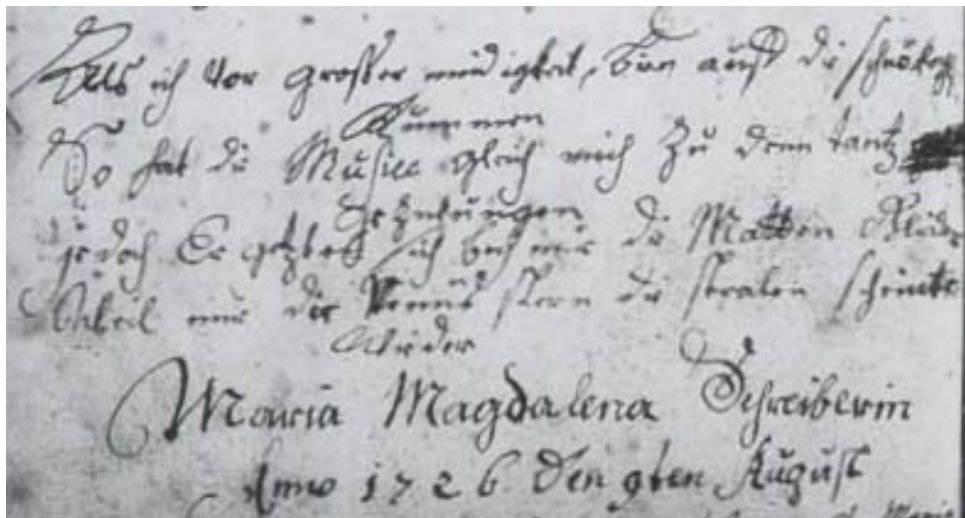 Als ich vor grosser müdigkeit, bin auff die schnöken
Kummen
So hat die Music gleich mich zu dem tantz
gezwungen
jedoch Ergetzten sich bey mir die Matten Glider
weil mir die Venus stern die stralen schinckt
Wieder
Maria Magdalena Schreiberin
Anno 1726 den 9ten August